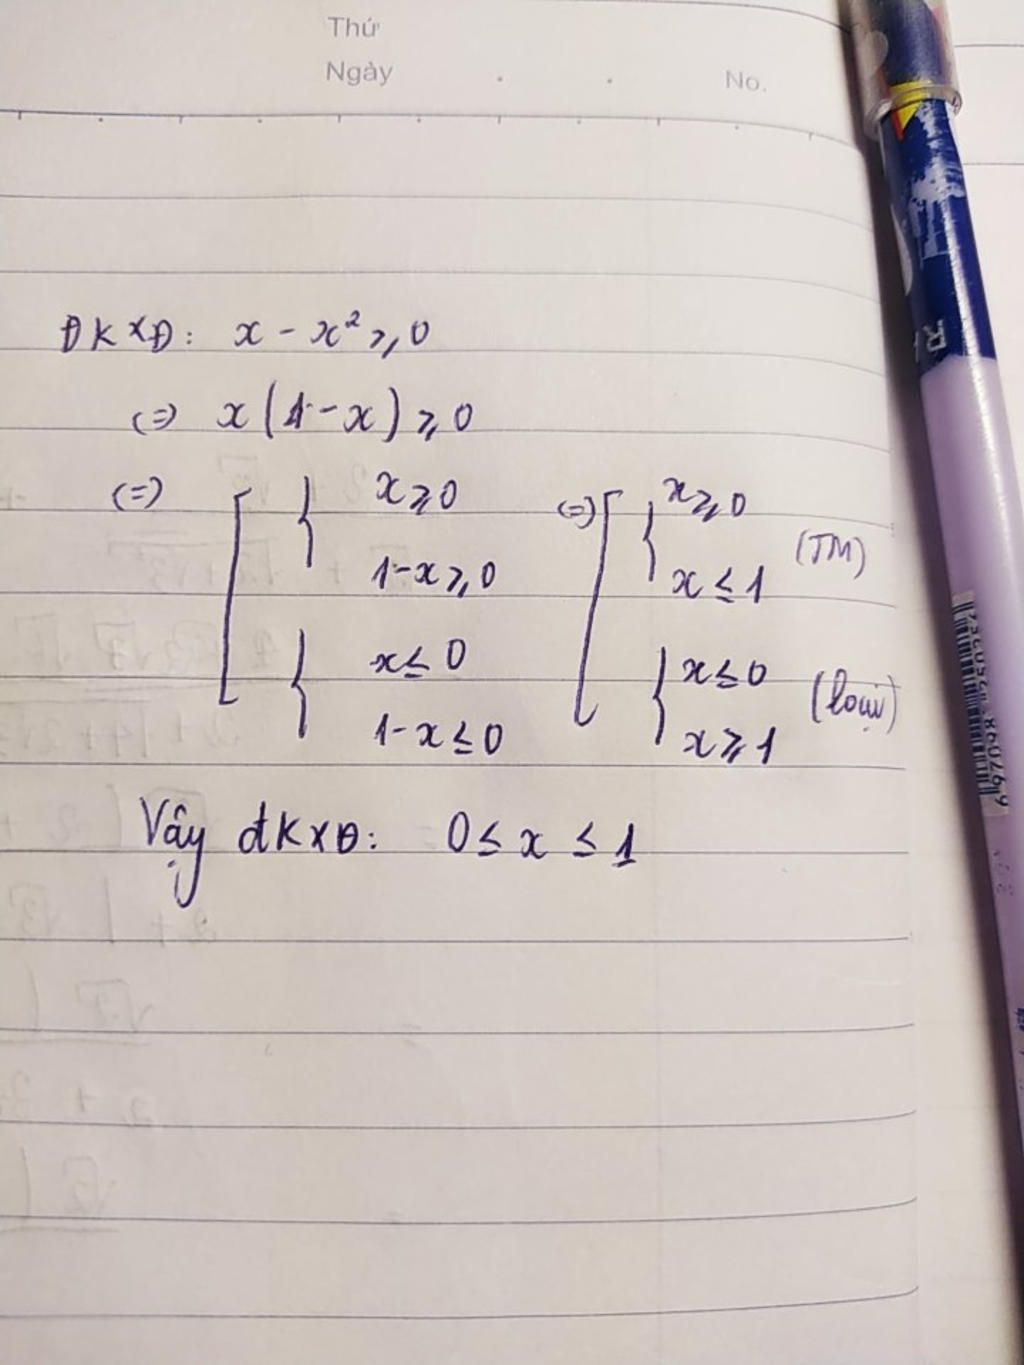 Thứ
Ngày . . No.
ĐKXĐ: x - x² ≥ 0
(=) x(1-x) ≥ 0
(=) [ { x ≥ 0 (=) [ { x ≥ 0
1-x ≥ 0 x ≤ 1 (TM)
{ x ≤ 0 { x ≤ 0
1-x ≤ 0 x ≥ 1 (loại)
Vậy đKXĐ: 0 ≤ x ≤ 1